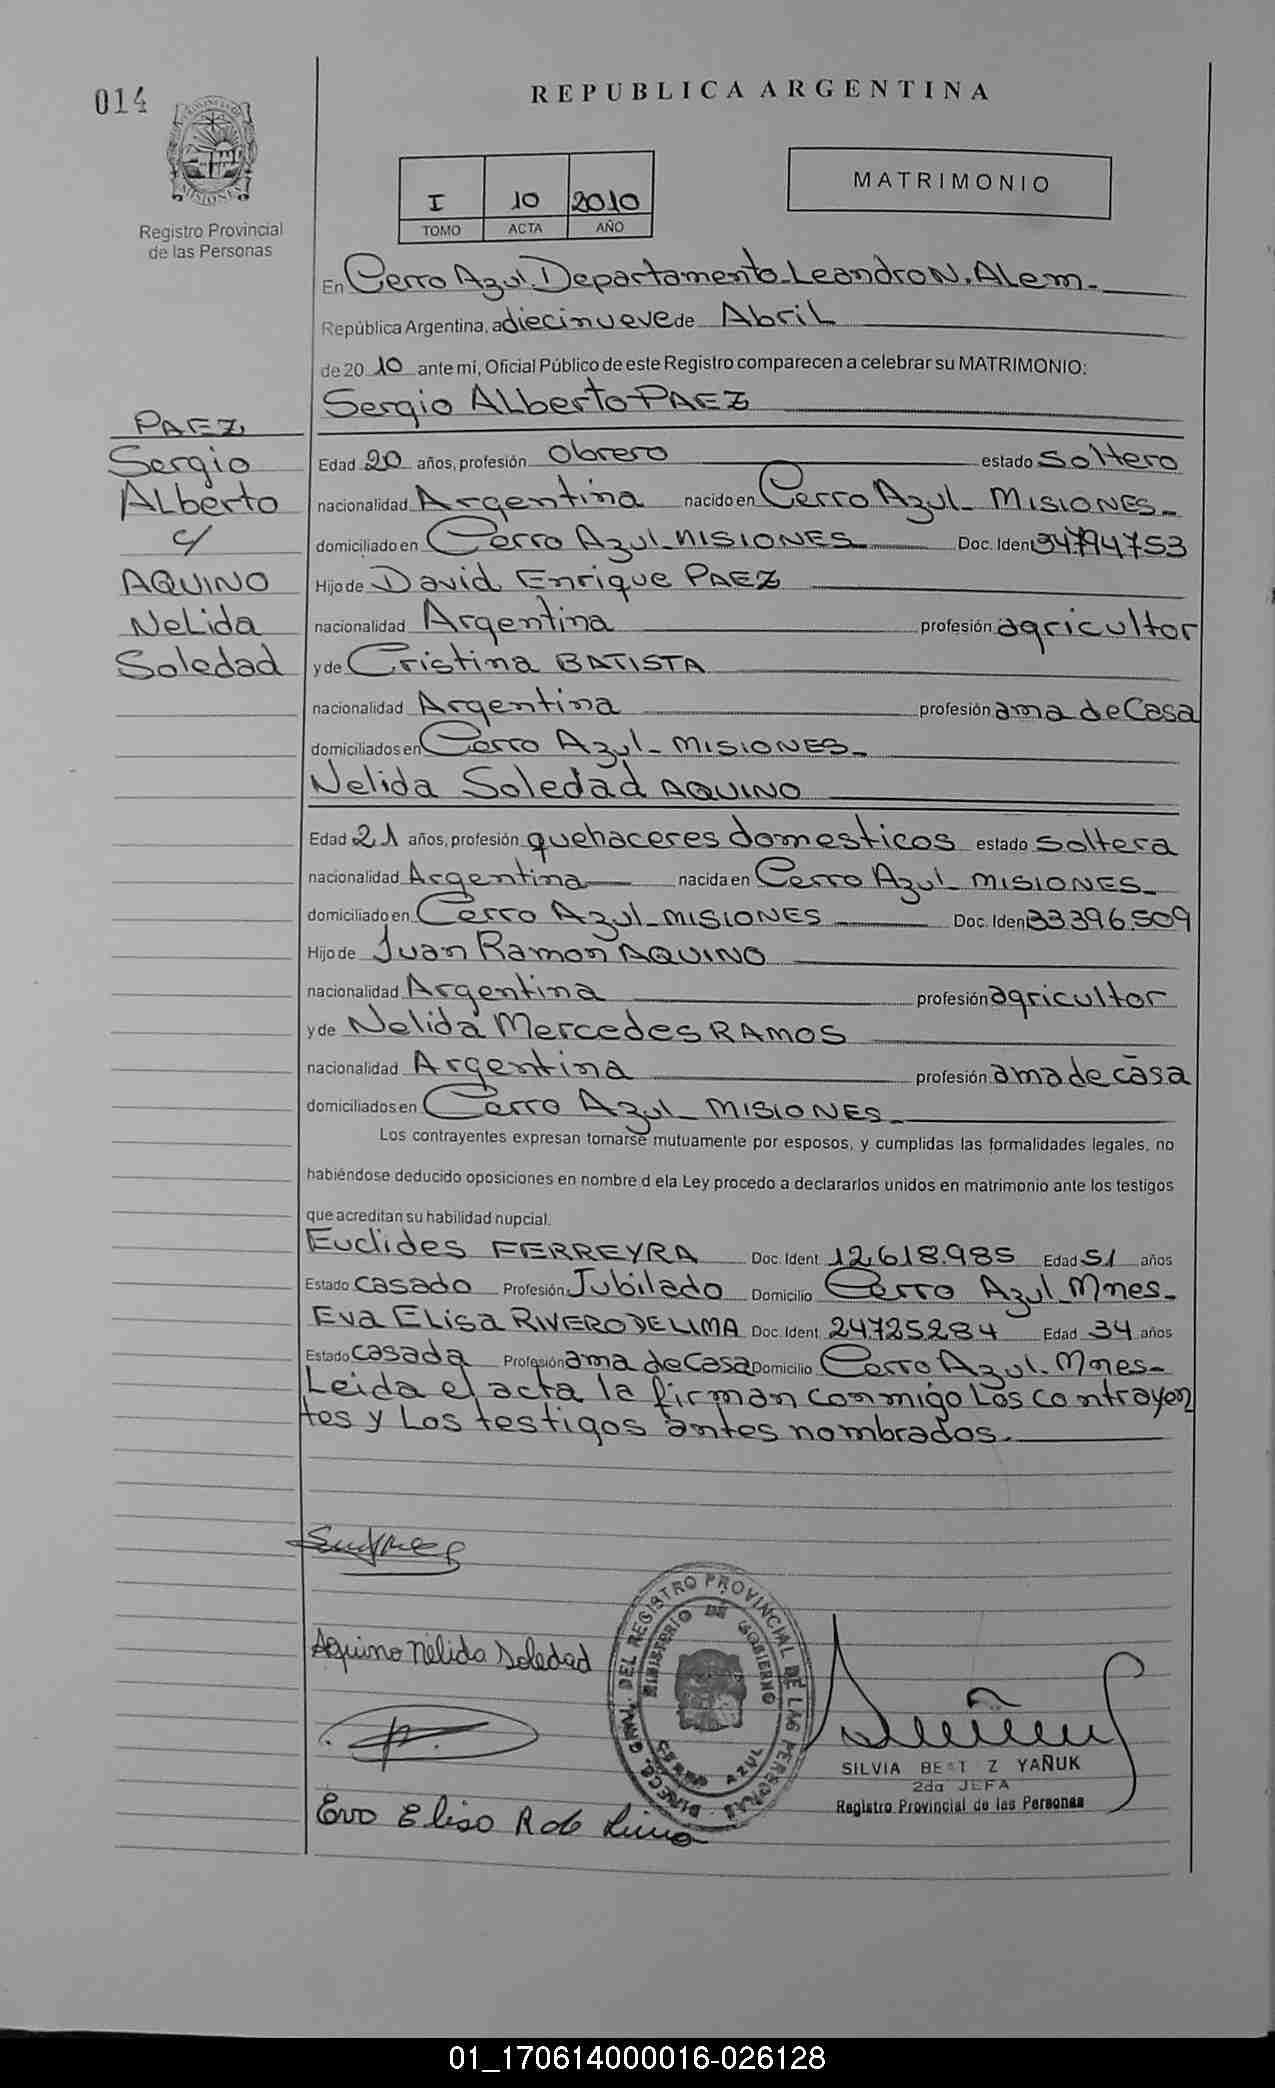 014
REPUBLICA ARGENTINA
PROVINCIA DE MISIONES
Registro Provincial
de las Personas
I 10 2010
TOMO ACTA AÑO
MATRIMONIO
En Cerro Azul. Departamento Leandro N. Alem.
República Argentina, a diecinueve de Abril
de 20 10 ante mí, Oficial Público de este Registro comparecen a celebrar su MATRIMONIO:
Sergio Alberto PAEZ
PAEZ
Sergio
Alberto
c/
AQUINO
Nelida
Soledad
Edad 20 años, profesión Obrero estado Soltero
nacionalidad Argentina nacido en Cerro Azul - MISIONES -
domiciliado en Cerro Azul - MISIONES Doc. Ident 34794753
Hijo de David Enrique PAEZ
nacionalidad Argentina profesión agricultor
y de Cristina BATISTA
nacionalidad Argentina profesión ama de Casa
domiciliados en Cerro Azul - MISIONES -
Nelida Soledad AQUINO
Edad 21 años, profesión quehaceres domesticos estado soltera
nacionalidad Argentina nacida en Cerro Azul - MISIONES -
domiciliado en Cerro Azul - MISIONES Doc. Iden 33396.509
Hijo de Juan Ramon AQUINO
nacionalidad Argentina profesión agricultor
y de Nelida Mercedes RAMOS
nacionalidad Argentina profesión ama de casa
domiciliados en Cerro Azul - MISIONES -
Los contrayentes expresan tomarse mutuamente por esposos, y cumplidas las formalidades legales, no
habiéndose deducido oposiciones en nombre d ela Ley procedo a declararlos unidos en matrimonio ante los testigos
que acreditan su habilidad nupcial.
Euclides FERREYRA Doc. Ident 12.618.985 Edad 51 años
Estado casado Profesión Jubilado Domicilio Cerro Azul - Mnes -
Eva Elisa RIVERO DE LIMA Doc. Ident 24.725284 Edad 34 años
Estado casada Profesión ama de Casa Domicilio Cerro Azul - Mnes -
Leida el acta la firman conmigo Los contrayen
tes y Los testigos antes nombrados.
Aquino Nélida Soledad
DIREC. GRAL. DEL REGISTRO PROVINCIAL DE LAS PERSONAS
MINISTERIO DE GOBIERNO
CERRO AZUL
SILVIA BEAT Z YAÑUK
2da JEFA
Registro Provincial de las Personas
Eva Elisa R de Lima
01_170614000016-026128